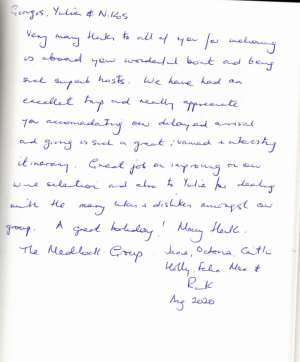 Giorgos, Yulia & Nikos
Very many thanks to all of you for welcoming
us aboard your wonderful boat and being
such superb hosts. We have had an
excellent trip and really appreciate
you accomodating our delayed arrival
and giving us such a great, varied + interesting
itinerary. Great job on improving on our
wine selection and also to Yulia for dealing
with the many likes + dislikes amongst our
group. A great holiday! Many thanks.
The Medlock Group. Jane, Octavia, Caitlin
Holly, Felix, Max &
Aug 2020